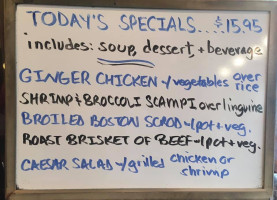 TODAY'S SPECIALS....$15.95
includes: soup, dessert, + beverage
GINGER CHICKEN w/vegetables over rice
SHRIMP & BROCCOLI SCAMPI over linguine
BROILED BOSTON SCROD w/pot + veg.
ROAST BRISKET OF BEEF w/pot + veg.
CAESAR SALAD w/grilled chicken or shrimp